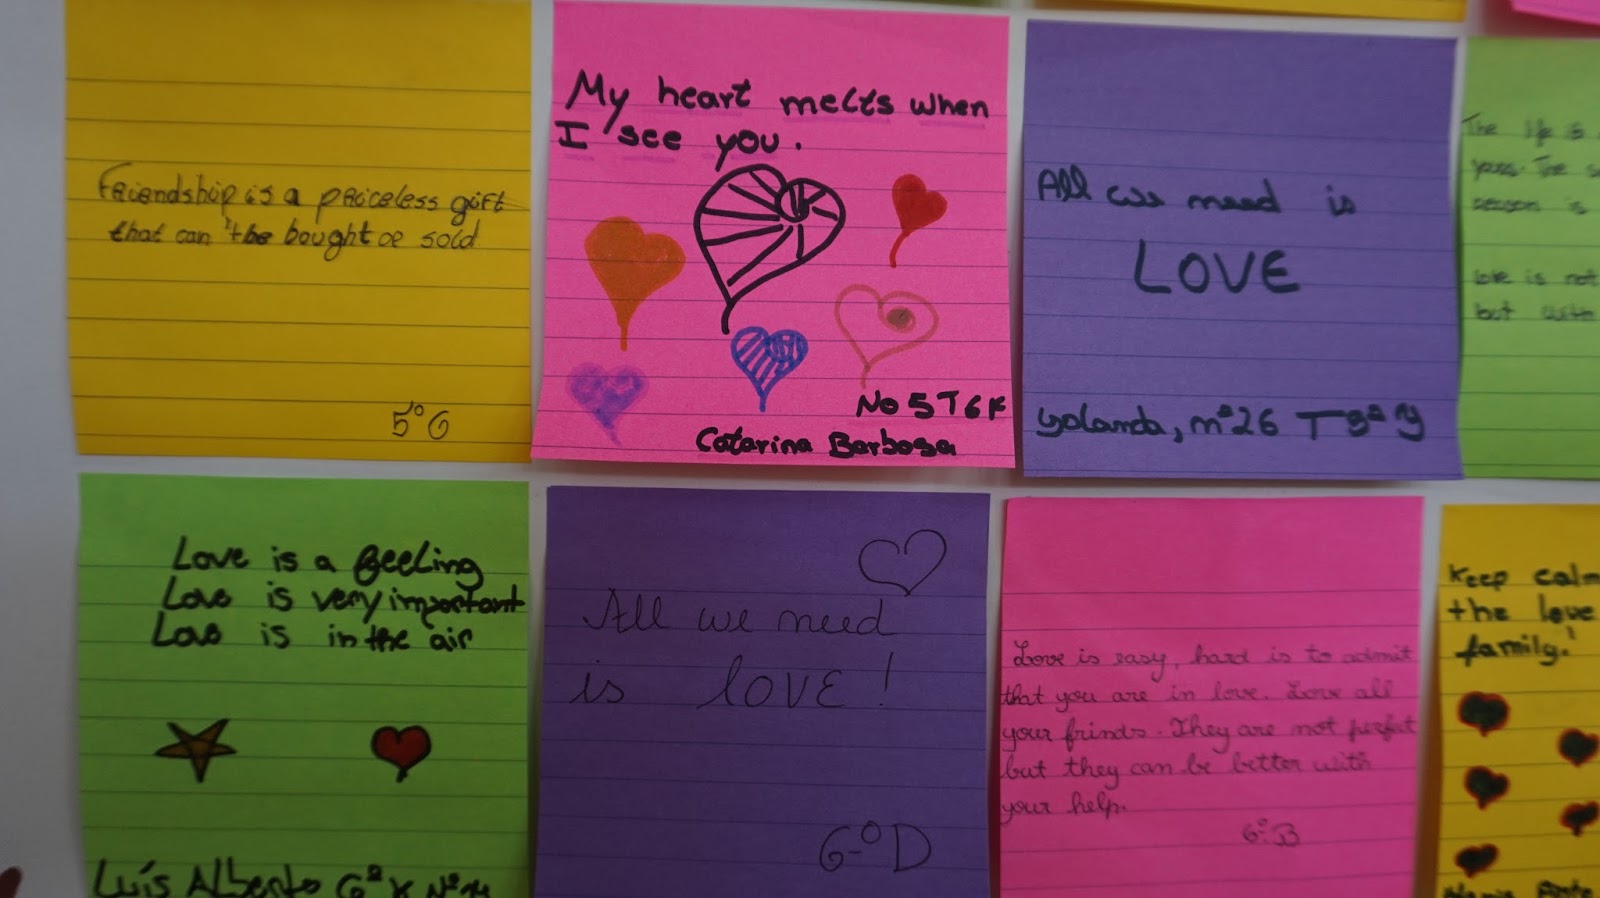 Friendship is a priceless gift
that can 't be bought or sold
5º G
My heart melts when
I see you.
No 5 T 6 K
Catarina Barbosa
All we need is
LOVE
Yolanda, nº 26 T
The life is
years. The
season is
love is not
but with
Love is a feeling
Love is very important
Love is in the air
Luís Alberto 6º K Nº
All we need
is love!
6º D
Love is easy, hard is to admit
that you are in love. Love all
your frinds. They are not perfect
but they can be better with
your help.
6º B
Keep calm
the love
family!